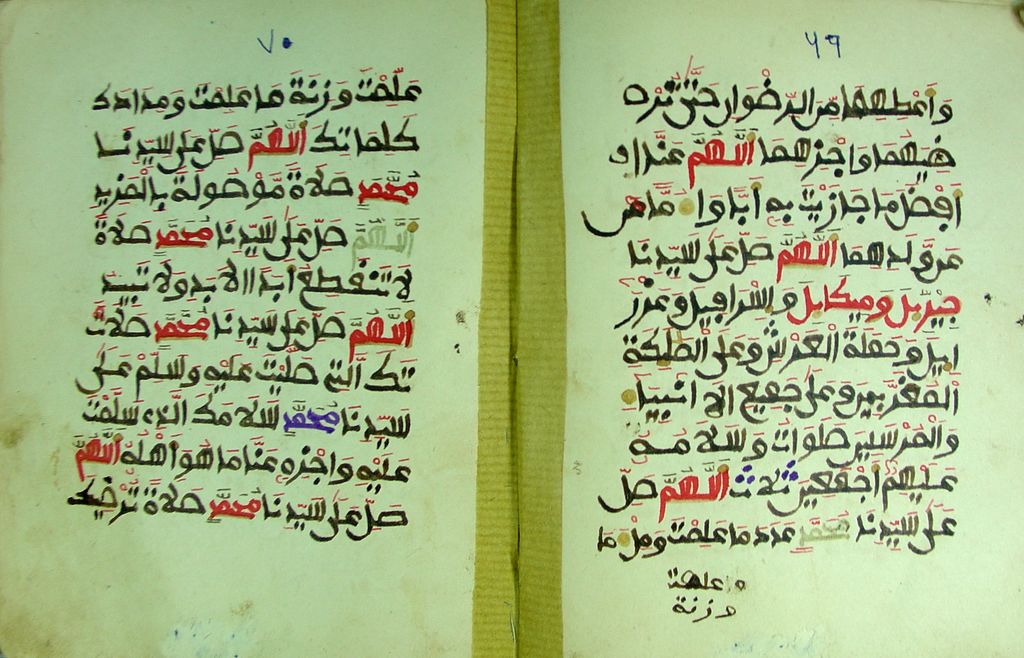 ٦٩
وأعطهما من الرضوان حتى تر
ضيهما واجزهما اللهم عنا
أفضل ما جازيت به أبا وا ما
عن ولدهما اللهم صل على سيدنا
جبريل وميكايل وإسرافيل وعزر
ايل وحملة العرش وعلى الملئكة
المقربين وعلى جميع الانبيا
والمرسلين صلوات وسلامه
عليهم أجمعين ثلاث اللهم صل
على سيدنا محمد عدد ما علمت ومل ما
علمت
وزنة
٧٠
علمت وزنة ما علمت ومداد
كلماتك اللهم صل على سيدنا
محمد صلاة موصولة بالمزيد
اللهم صل على سيدنا محمد صلاة
لا تنقطع أبدا الابد ولا تبيد
اللهم صل على سيدنا محمد صلا
تك التي صليت عليه وسلم على
سيدنا محمد سلامك الذي سلمت
عليه واجزه عنا ما هو أهله اللهم
صل على سيدنا محمد صلاة ترضيك